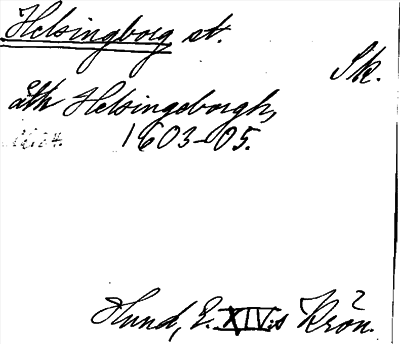 Helsingborg st.
Sk.
åth Helsingeborgh,
1603-05.
Hund, E. XIV:s Krön.